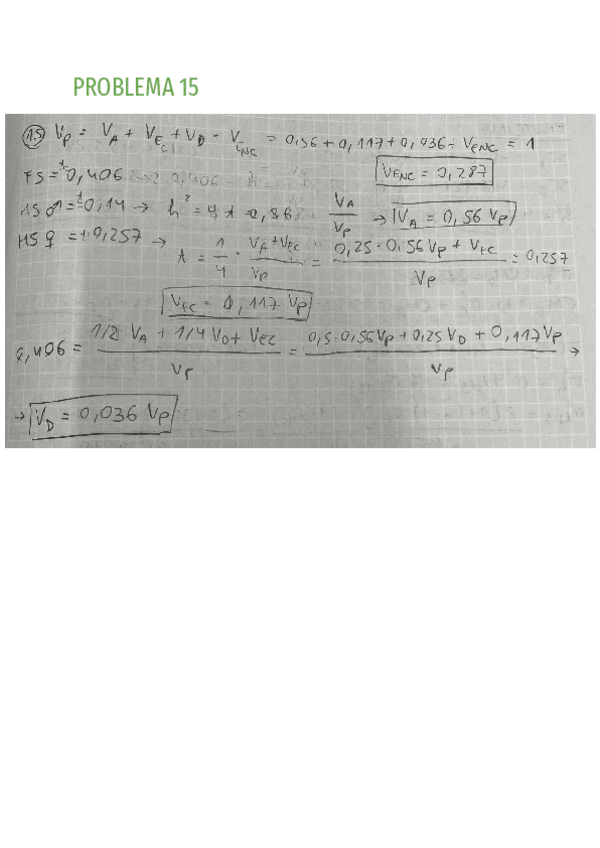 PROBLEMA 15
(15) Vp = VA + VEC + VD + VENC = 0,56 + 0,117 + 0,036 + VENC = 1
FS = t 0,406
VENC = 0,287
HS ♂ = t 0,14 → h² = 4 t = 0,56 VA/Vp → VA = 0,56 Vp
HS ♀ = t 0,257 → t = 1/4 · VA + VEC / Vp = 0,25 · 0,56 Vp + VEC / Vp = 0,257
VEC = 0,117 Vp
0,406 = 1/2 VA + 1/4 VD + VEC / Vp = 0,5 · 0,56 Vp + 0,25 VD + 0,117 Vp / Vp →
→ VD = 0,036 Vp